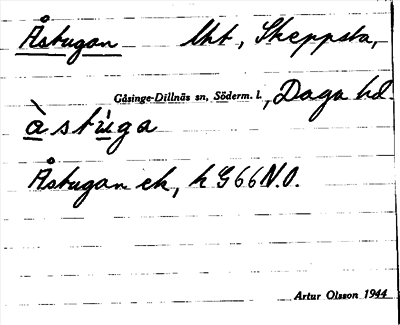 Åstugan lht, Skeppsta,
Gåsinge-Dillnäs sn, Söderm. l., Daga hd
à stùga
Åstugan ek, k G66 N.O.
Artur Olsson 1944